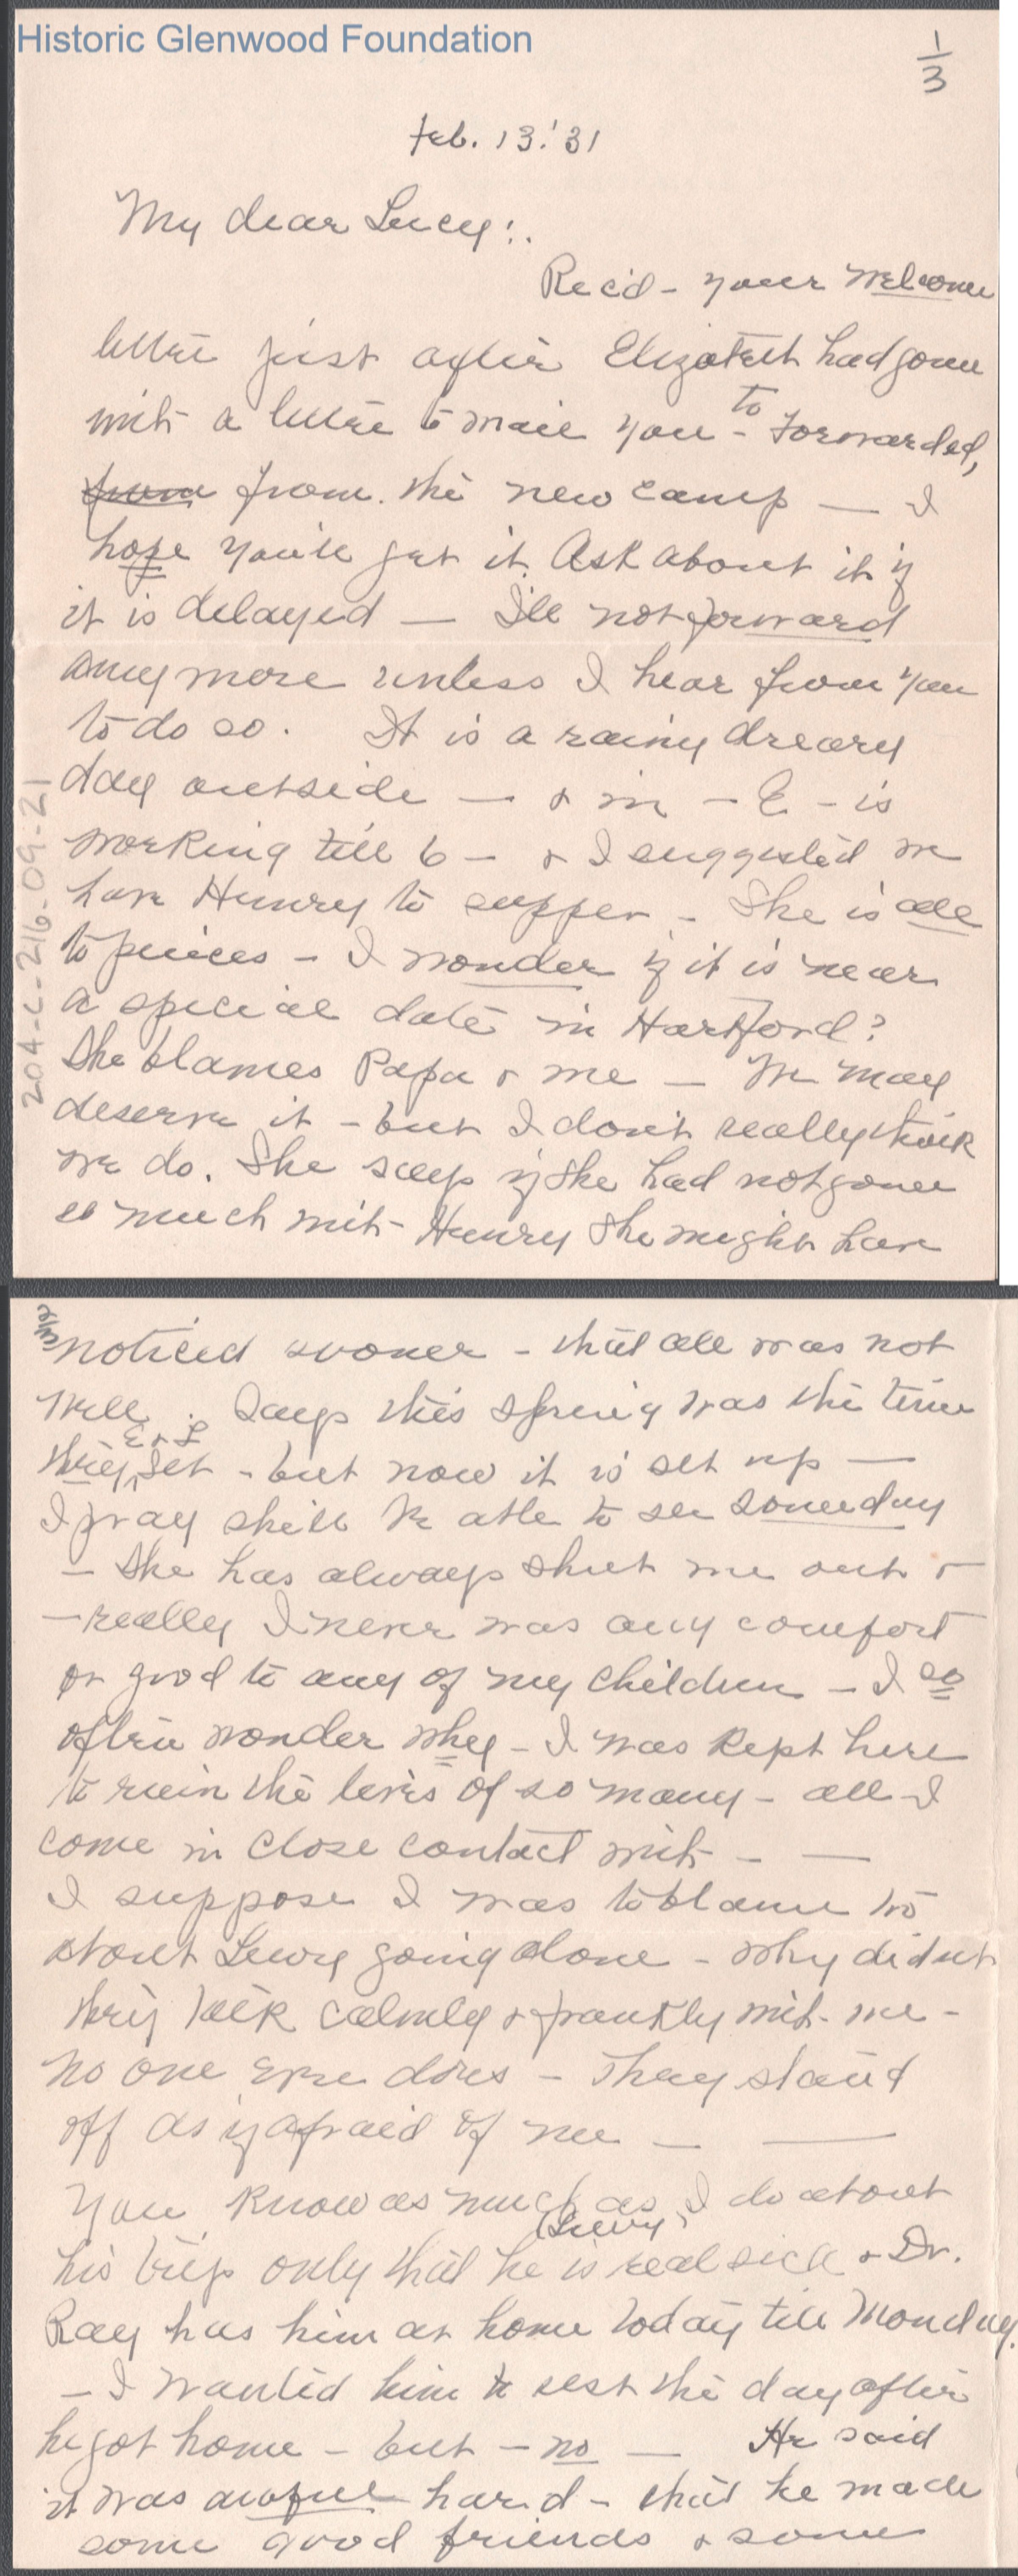 Historic Glenwood Foundation
1/3
Feb. 13.'31
My dear Lucy:.
Rec'd - your welcome
letter just after Elizabeth had gone
with a letter to mail you - to Forwarded,
from from. the new camp — I
hope you'll get it. Ask about it if
it is delayed — I'll not forward
any more unless I hear from you
to do so. It is a rainy dreary
day outside — & in - E - is
working till 6 - & I suggested we
have Henry to supper - She is all
to pieces - I wonder if it is near
a special date in Hartford?
She blames Papa & me — We may
deserve it - but I don't really think
we do. She says if she had not gone
so much with Henry she might have
204-C-216.09-21
noticed sooner - that all was not
well. Says this spring was the time
they E & L set - but now it is set up —
I pray she'll be able to see someday
- She has always shut me out &
- really I never was any comfort
or good to any of my children - I so
often wonder why - I was kept here
to ruin the lives of so many - all I
come in close contact with - —
I suppose I was to blame too
about Lewy going alone - why didn't
they talk calmly & frankly with me -
no one ever does - They stand
off as if afraid of me — —
You know as much as I do about
his trip only that he (Lewy) is real sick & Dr.
Ray has him at home today till Monday.
- I wanted him to rest the day after
he got home - but - no — He said
it was awful hard - that he made
some good friends & some